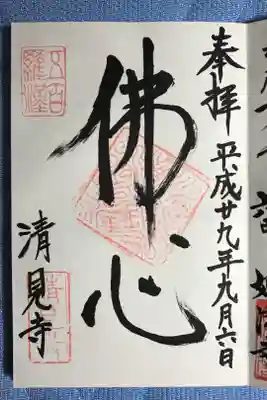 奉拝 平成廿九年九月六日
佛心
清見寺
五百
羅漢